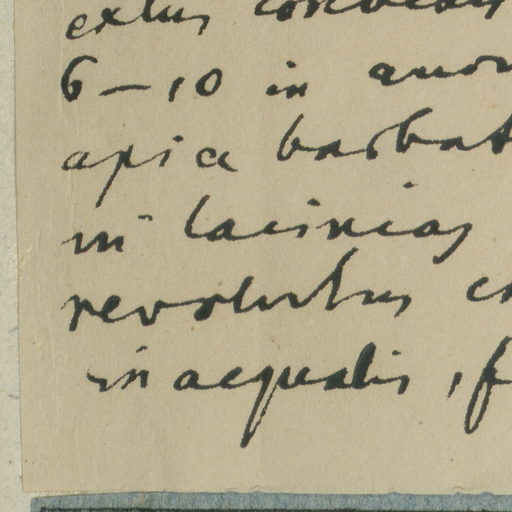 extus
6–10 in
apice barbat
in lacinias
revolutus
inaequalis, f